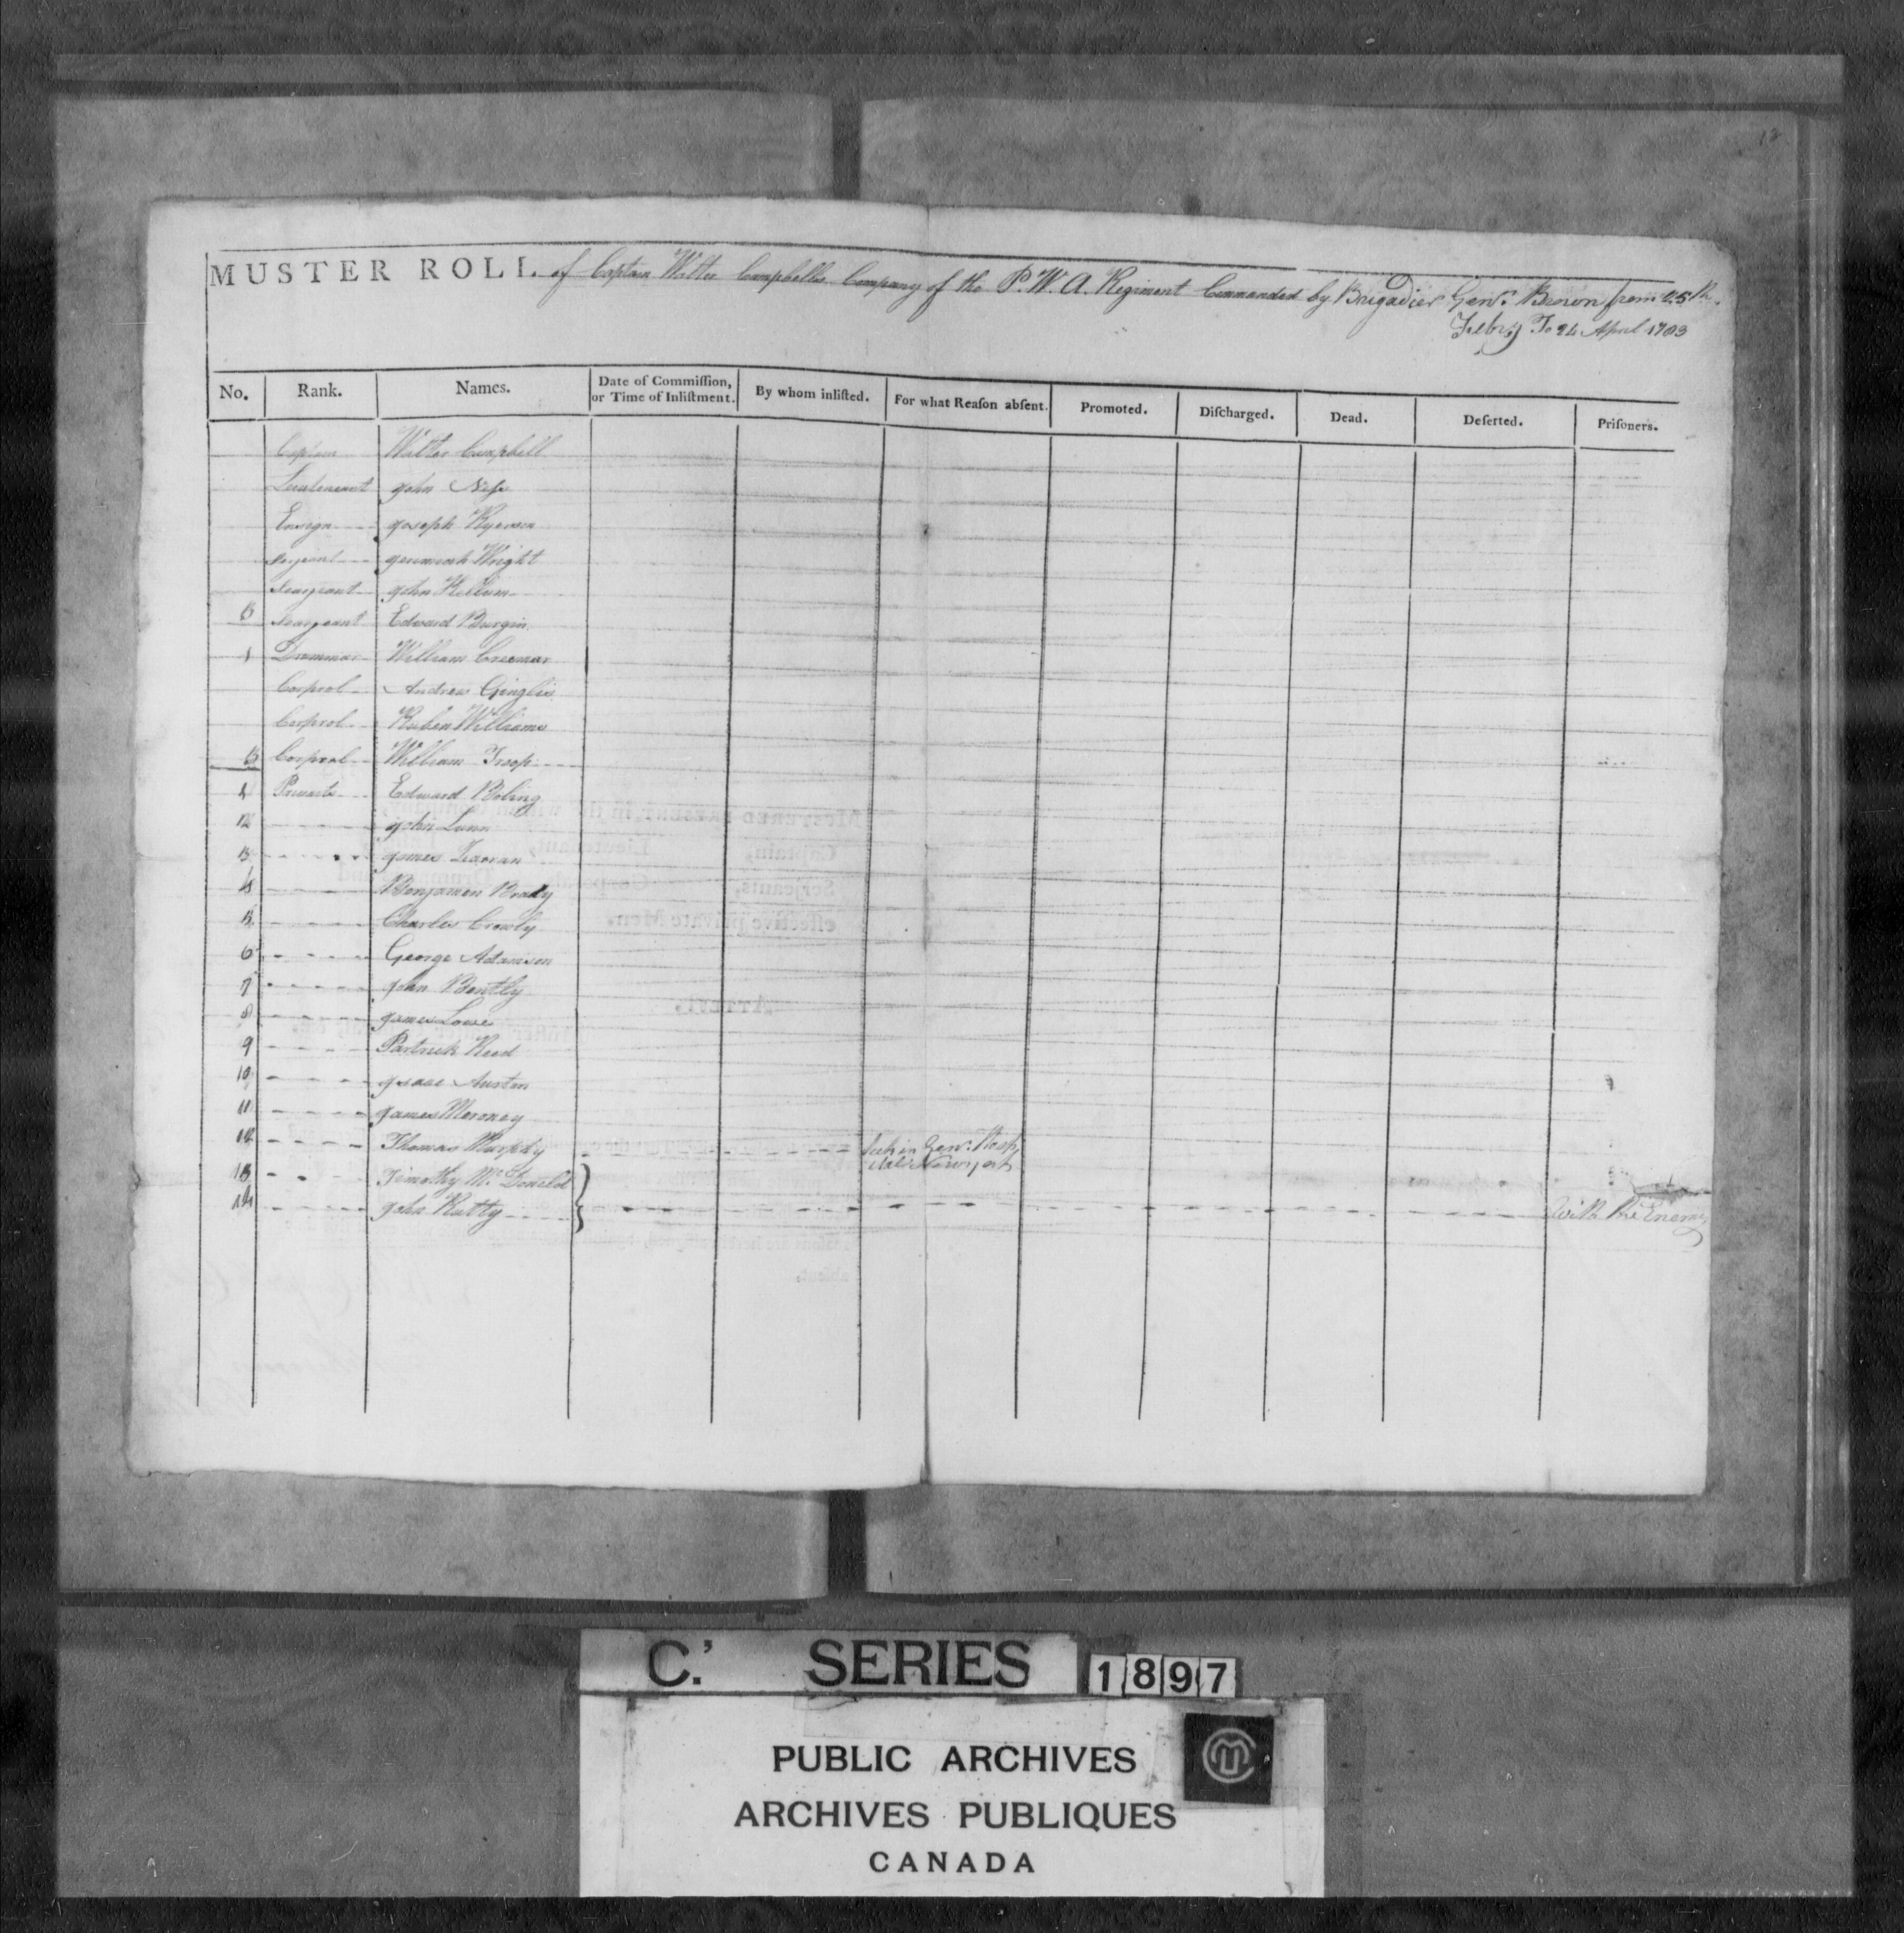 13
MUSTER ROLL of Captain Walter Campbells Company of the P. W. A. Regiment Commanded by Brigadier Genr. Brown from 25th
Febry To 24 April 1783
No. Rank. Names. Date of Commiſſion, or Time of Inliſtment. By whom inliſted. For what Reaſon abſent. Promoted. Diſcharged. Dead. Deſerted. Priſoners.
Captain Walter Campbell
Lieutenant John
Ensign Joseph Ryerson
Serjeant Jeremiah Wright
Searjeant John Kellum
3 Searjeant Edward Burgin
1 Drummar William Creemar
Corprol Andrew Ginglis
Corprol Ruben Williams
3 Corpral William Troop
1 Privarts Edward Boling
2 John Lunn
3 James
4 Benjamen Brady
5 Charles Crowly
6 George Adamson
7 John Bently
8 James Lowe
9 Partrick Reed
10 Isaac Austin
11 James Moroney
12 Thomas Murphy Sick in Genr. Hosp
Newyork
13 Timothy Mc Donald
14 John Rutty With the Enemy
C.' SERIES 1897
PUBLIC ARCHIVES
ARCHIVES PUBLIQUES
CANADA